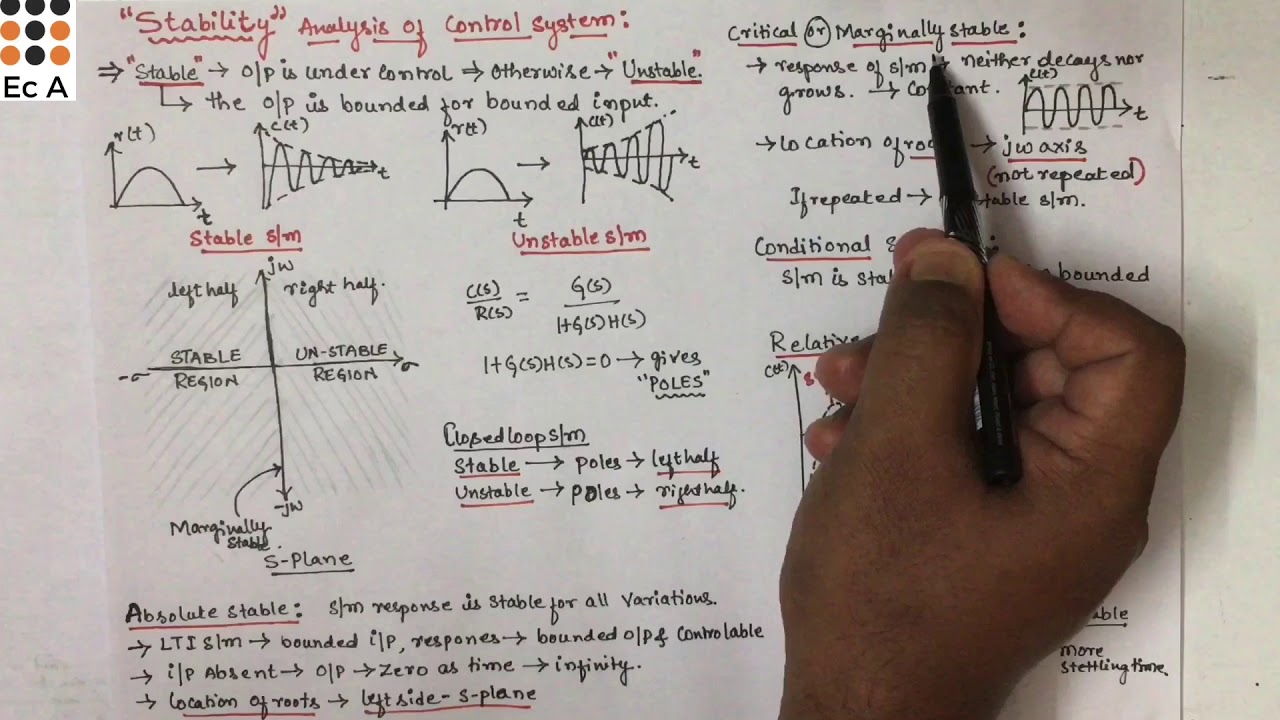 Ec A
"Stability" Analysis of Control System:
⇒ "Stable" → O/P is under control ⇒ Otherwise → "Unstable."
↳ the O/P is bounded for bounded input.
r(t)
t
c(t)
t
Stable s/m
r(t)
t
c(t)
t
Unstable s/m
jw
left half
right half.
STABLE REGION
UN-STABLE REGION
-σ
σ
-jw
Marginally
Stable.
S-Plane
C(s)/R(s) = G(s)/1+G(s)H(s)
1+G(s)H(s)=0 → gives
"POLES"
Closed loop s/m
Stable → poles → left half
Unstable → poles → right half.
Absolute stable: s/m response is stable for all variations.
→ LTI s/m → bounded i/p, respones → bounded O/P & Controlable
→ i/p Absent → O/P → Zero as time → infinity.
→ location of roots → left side - s-plane
Critical or Marginally stable:
→ response of s/m → neither decays nor
grows. →
c(t)
t
→ location of → jw axis
(not repeated)
If repeated → s/m.
Conditional
s/m is bounded
Relative
c(t)
more
stettling time.